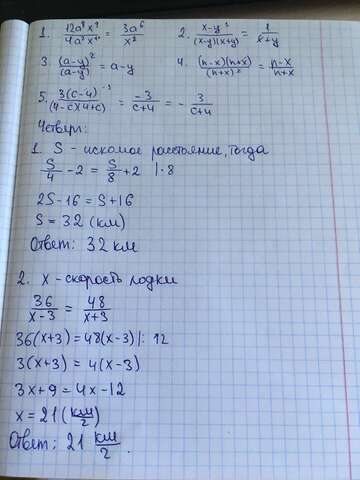 1. 12a⁹x⁷/4a³x⁹ = 3a⁶/x² 2. x-y ¹/(x-y)(x+y) = 1/x+y
3. (a-y)²/(a-y) = a-y 4. (n-x)(n+x)/(n+x)² = n-x/n+x
5. 3(c-4) ⁻¹/(4-c)(4+c) = -3/c+4 = - 3/c+4
Четверг:
1. S - искомое расстояние, тогда
S/4 - 2 = S/8 + 2 |·8
2S - 16 = S + 16
S = 32 (км)
Ответ: 32 км
2. x - скорость лодки
36/x-3 = 48/x+3
36(x+3) = 48(x-3) |: 12
3(x+3) = 4(x-3)
3x+9 = 4x-12
x = 21 (км/г)
Ответ: 21 км/г.